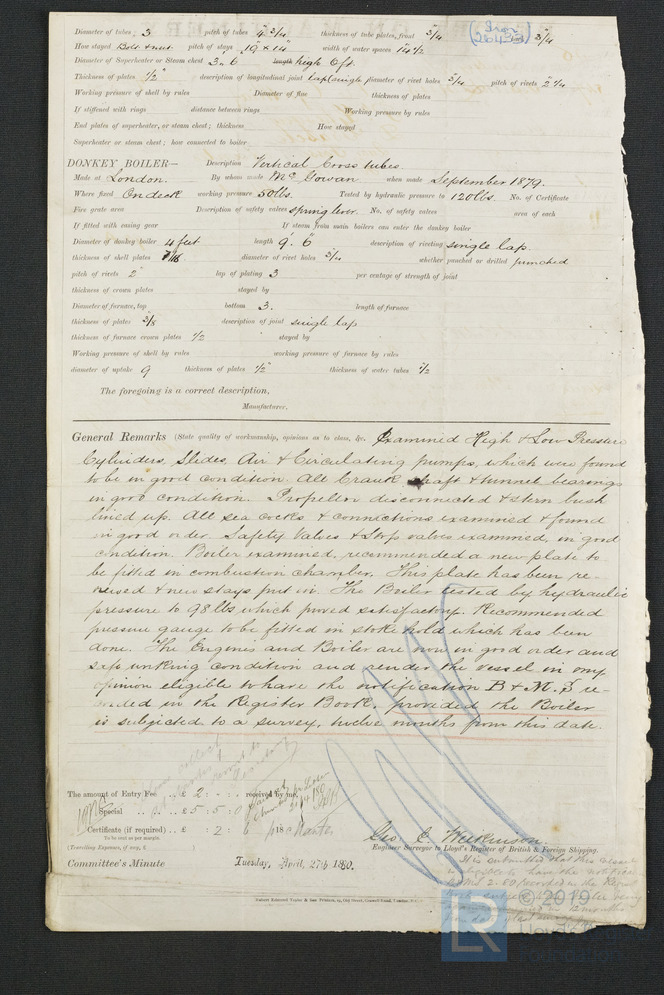 Diameter of tubes 3 pitch of tubes 4 3/4 thickness of tube plates, front 3/4 3/4
How stayed Bolt & nut. pitch of stays 19 x 14" width of water spaces
Diameter of Superheater or Steam chest 3.. 6 length high 6ft.
Thickness of plates 1/2" description of longitudinal joint lap single diameter of rivet holes 3/4 pitch of rivets 2 1/4
Working pressure of shell by rules Diameter of flue thickness of plates
If stiffened with rings distance between rings Working pressure by rules
End plates of superheater, or steam chest; thickness How stayed
Superheater or steam chest; how connected to boiler
DONKEY BOILER— Description Vertical Cross tubes.
Made at London. By whom made Mc Gowan when made September 1879.
Where fixed On deck working pressure 50lbs. Tested by hydraulic pressure to 120lbs No. of Certificate
Fire grate area Description of safety valves spring lever. No. of safety valves area of each
If fitted with easing gear If steam from main boilers can enter the donkey boiler
Diameter of donkey boiler 4 feet length 9'. 6" description of riveting single lap.
thickness of shell plates 7/16 diameter of rivet holes 3/4 whether punched or drilled punched
pitch of rivets 2" lap of plating 3 per centage of strength of joint
thickness of crown plates stayed by
Diameter of furnace, top bottom 3. length of furnace
thickness of plates 3/8 description of joint single lap
thickness of furnace crown plates 1/2 stayed by
Working pressure of shell by rules working pressure of furnace by rules
diameter of uptake 9 thickness of plates 1/2" thickness of water tubes 1/2
The foregoing is a correct description,
Manufacturer.
General Remarks (State quality of workmanship, opinions as to class, &c. Examined High & Low Pressure
Cylinders, Slides, Air & Circulating pumps, which were found
to be in good condition. All Crank shaft & tunnel bearings
in good condition. Propellor disconnected & stern bush
lined up. All sea cocks & connections examined & found
in good order. Safety Valves & Stop valves examined, in good
condition. Boiler examined, recommended a new plate to
be fitted in combustion chamber. This plate has been re-
newed & new stays put in. The Boiler tested by hydraulic
pressure to 98 lbs which proved satisfactory. Recommended
pressure gauge to be fitted in stoke hold which has been
done. The Engines and Boiler are now in good order and
safe working condition and render the vessel in my
opinion eligible to have the notification B & M. S re-
corded in the Register Book, provided the Boiler
is subjected to a survey, twelve months from this date.
The amount of Entry Fee .. £ 2 : - : received by me,
Special .. £ 5 : 5 : 0
Certificate (if required) .. £ : 2 : 6
To be sent as per margin.
(Travelling Expenses, if any, £
Geo. C. Wilkinson
Engineer Surveyor to Lloyd's Register of British & Foreign Shipping.
Committee's Minute Tuesday, April, 27th 1880.
© 2019
LR
Lloyd's Register
Foundation